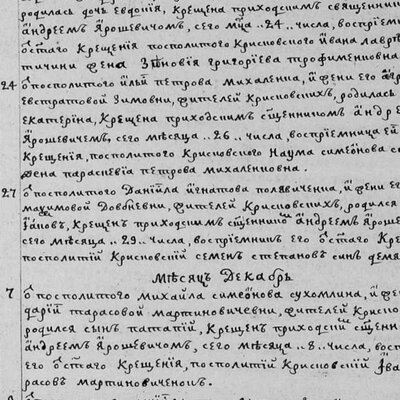 родилась дочь Евдокія, крещена приходскимъ священник
Андреемъ Ярошевичемъ, сего мца ..24.. числа, воспріем
о͠стаго Крещенія посполитого Крисновского Ивана Лаврѣ
тичини жена Зѣновія Григоріева трофименкова
24 о͠ посполитого Ильй Петрова Михаленка, и жени его
Евстратовой зимовни, жителей Крисновскихъ, родилась
Екатерина, крещена приходскимъ сщ͠енникомъ Андре
Ярошевичемъ, сего мѣсяца ..26.. числа, воспріемница ей
Крещенія, посполитого Крисновского Наума Симеонова со
жена Параспевіа Петрова Михаленкова.
27 о͠ посполитого Даніила Игнатова полявиченка, и жени ег
Максимовой Довбневни, жителей Крисновскихъ, родился
Іаковъ, крещенъ приходскимъ сщ͠енникомъ Андреемъ Яроше
сего мѣсяца ..29.. числа, воспріемникъ его о͠стаго Кре
посполитій Крисновскій Семенъ Степановъ синъ Демя
Мѣсяцъ Декабрь
7 о͠ посполитого Михайла Симеонова Сухомлина, и жен
Дарій Тарасовой Мартиновичевни, жителей Крисно
родился сынъ Патапій, крещенъ приходскимъ сщ͠енни
Андреемъ Ярошевичемъ, сего мѣсяца ..8.. числа, вос
его о͠стаго Крещенія, посполитій Крисновскій Іва
расовъ Мартиновиченокъ.